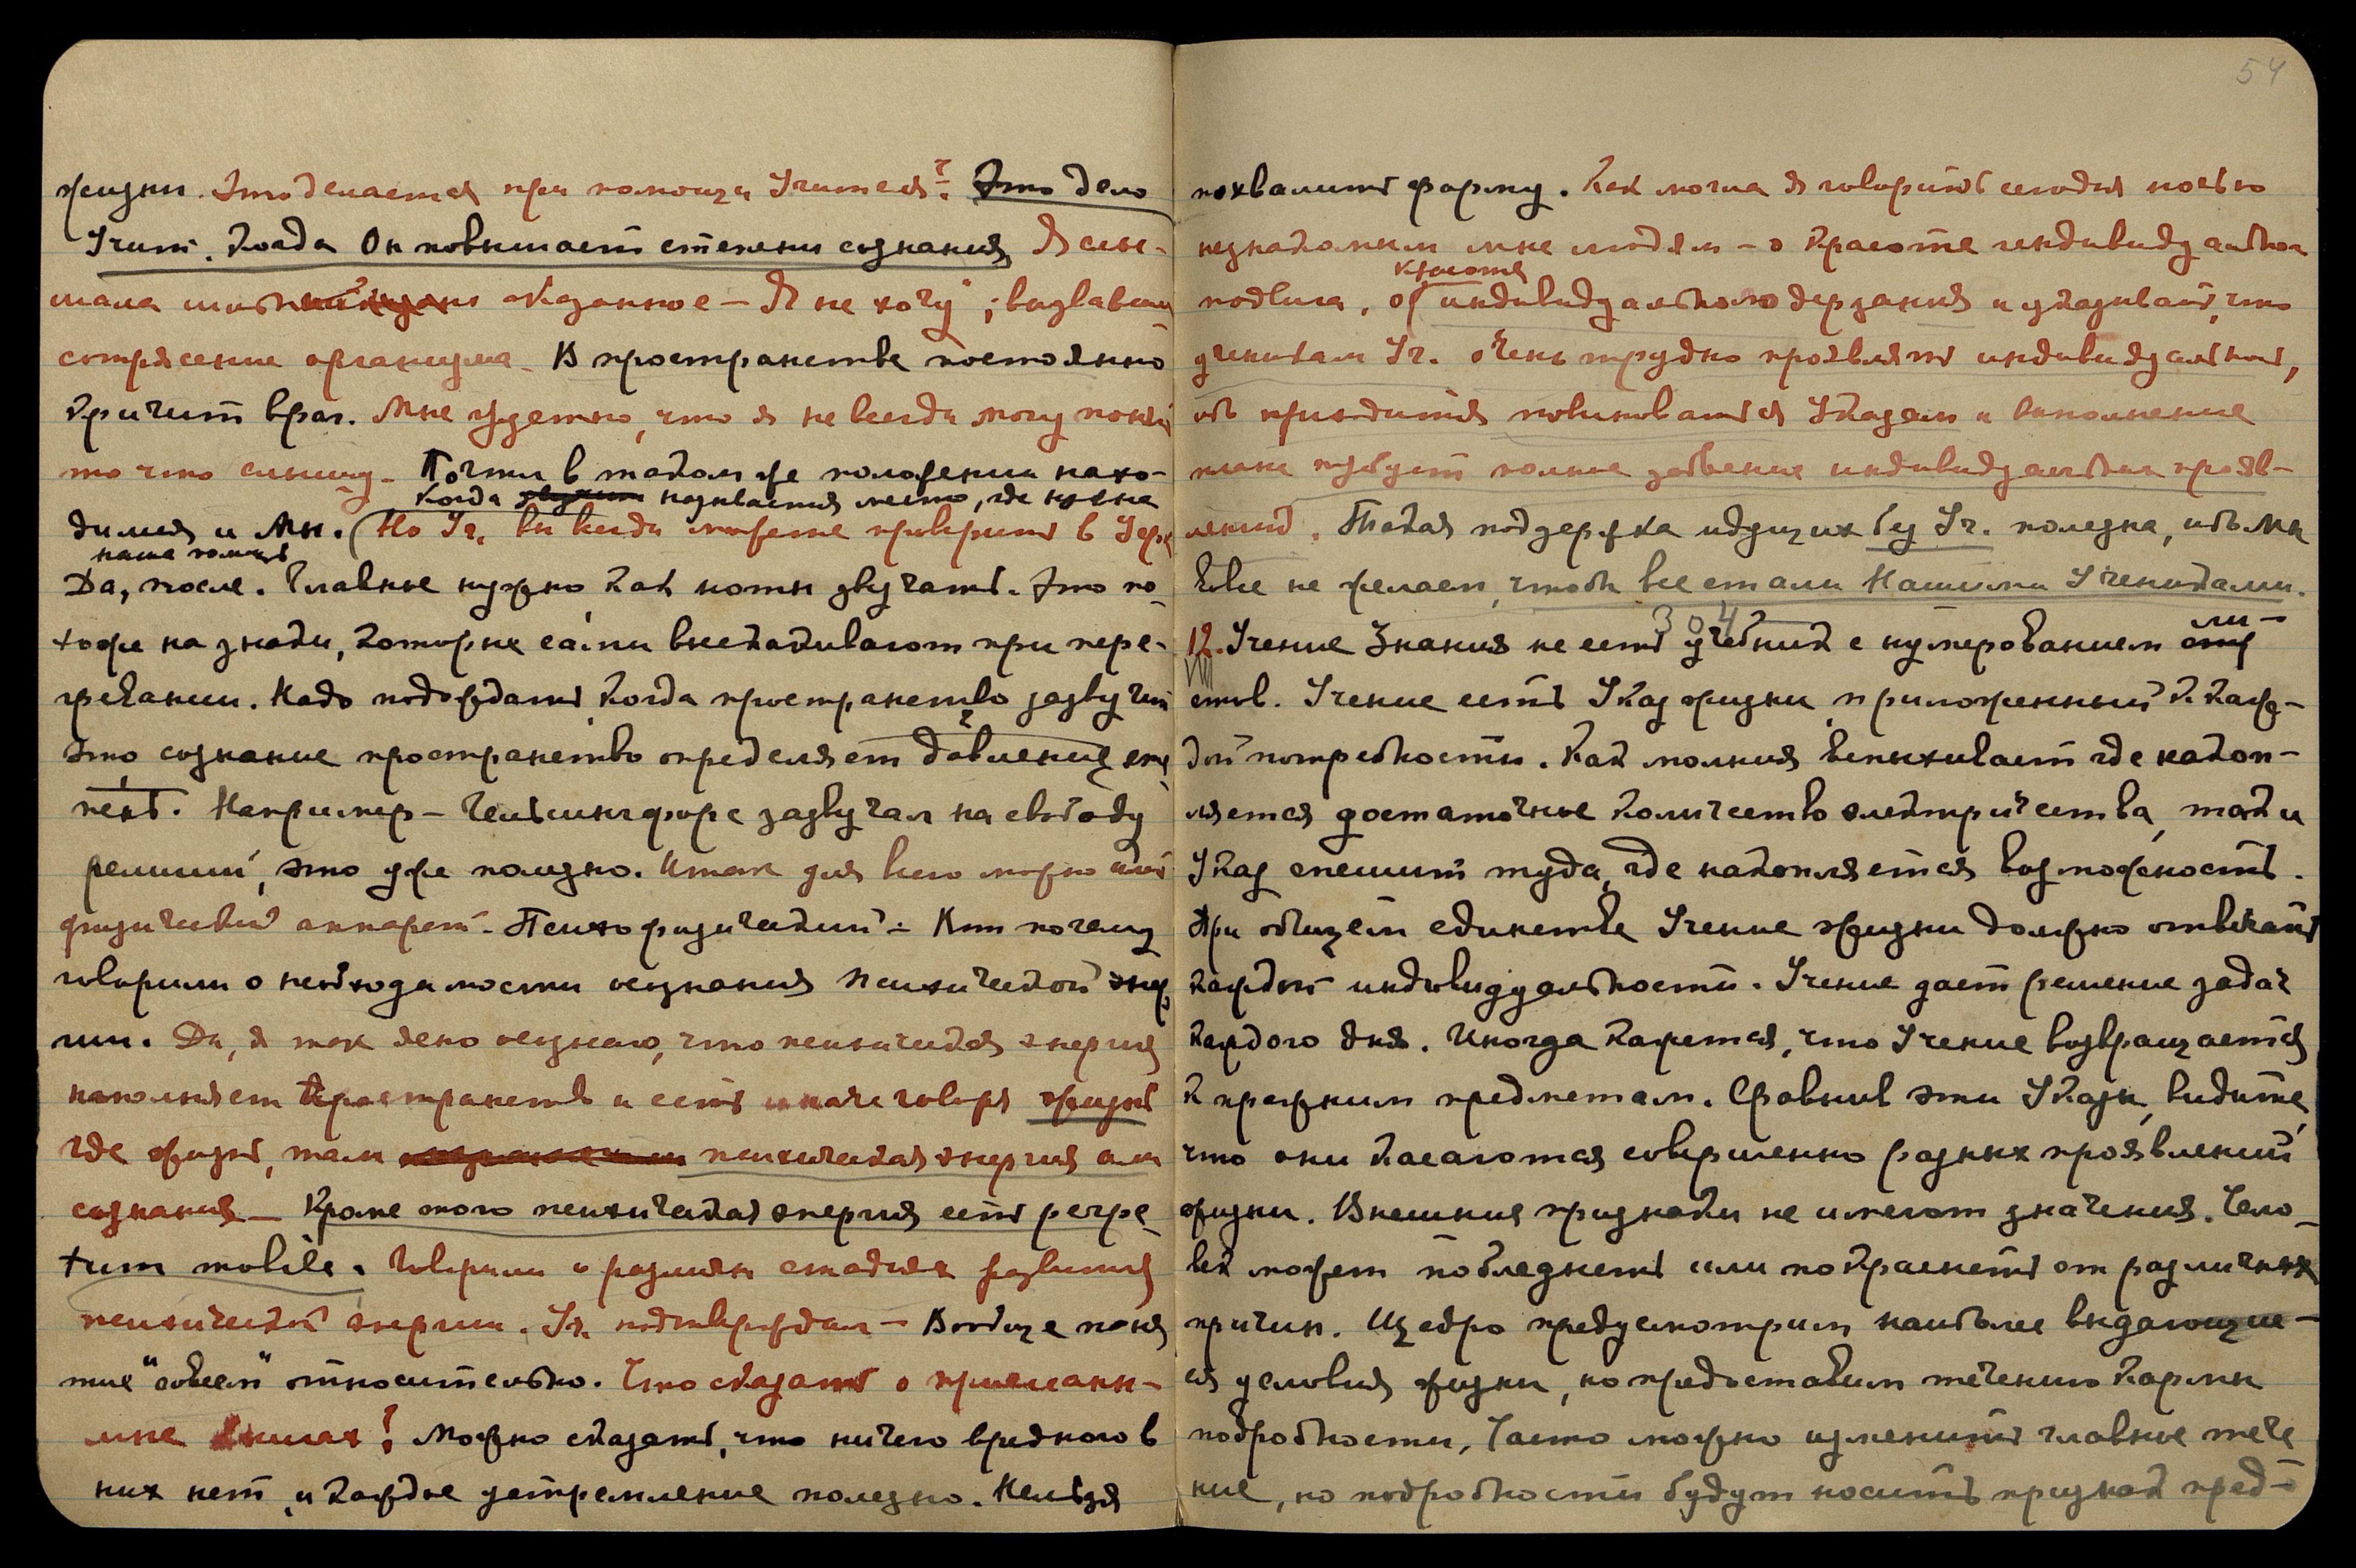 жизни. Это делается при помощи Учителя? – Это дело
Учит. когда Он повышает степени сознания. Я слы-
шала сказанное – Я не хочу", вызвавшее
сотрясение организма – В пространстве постоянно
кричит враг. Мне ужасно, что я не всегда могу понять
то что слышу – Почти в таком же положении нахо-
когда называется место, где нужна
димся и Мы. (Но Уч. вы всегда можете проверить в Зерк
наша помощь
Да, после. Главное нужно, как ноты звучат. Это по-
хоже на знаки, которые сами выскакивают при пере-
гревании. Надо подождать, когда пространство зазвучит
это сознание пространство определяет давление
Например – Гельсингфорс зазвучал на свободу
религий, это уже полезно. Итак для всего можно
физический аппарат – Психофизический – Вот почему
говорили о необходимости осознания психической энер
гии. Да, я так ясно осознаю, что психическая энергия
наполняет пространство и есть иначе говоря жизнь
где жизнь, там психическая энергия или
сознания – Кроме того психическая энергия есть perpe-
tum mobile. Говорили о разных стадиях развития
психической энергии. Уч. подтверждал – Вообще поня
тие "совсем" относительно. Что сказать о присланн-
мне книгах? Можно сказать, что ничего вредного в
них нет, и каждое устремление полезно. Нельзя
54
похвалить форму. Как могла я говорить сегодня ночью
незнакомым мне людям – о красоте индивидуального
красоте
подвига, о индивидуального дерзания и указывать, что
ученикам Уч. очень трудно проявлять индивидуальность,
ибо приходится повиноваться Указам и выполнение
плана требует полное забвение индивидуальных прояв-
лений. Такая поддержка идущих без Уч. полезна, ибо Мы
вовсе не желаем, чтобы все стали Нашими Учениками.
304
ли-
12. Учение Знания не есть учебник с нумерованием
VIII
стов. Учение есть Указ жизни, приложенный к каж-
дой потребности. Как молния вспыхивает где накоп-
ляется достаточное количество электричества, так и
Указ спешит туда, где накопляется возможность.
При общем единстве Учение жизни должно отвечать
каждой индивидуальности. Учение дает решение задач
каждого дня. Иногда кажется, что Учение возвращается
к прежним предметам. Сравнив эти Указы, видите,
что они касаются совершенно разных проявлений
жизни. Внешние признаки не имеют значения. Чело-
век может побледнеть или покраснеть от различных
причин. Щедро предусмотрим наиболее выдающие-
ся условия жизни, но предоставим течению Кармы
подробности. Часто можно изменить главное тече
ние, но подробности будут носить признак пред-